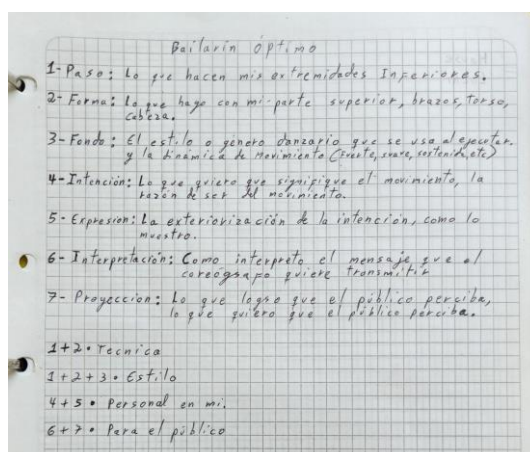 Bailarin óptimo
1- Paso: Lo que hacen mis extremidades Inferiores.
2- Forma: Lo que hago con mi parte superior, brazos, torso,
cabeza.
3- Fondo: El estilo o género danzario que se usa al ejecutar.
y la dinámica de movimiento (fuerte, suave, sostenido, etc)
4- Intención: Lo que quiero que signifique el movimiento, la
razón de ser del movimiento.
5- Expresión: La exteriorización de la intención, como lo
muestro.
6- Interpretación: Como interpreto el mensaje que el
coreógrafo quiere transmitir
7- Proyeccion: Lo que logro que el público perciba,
lo que quiero que el público perciba.
1+2 • Tecnica
1+2+3 • Estilo
4+5 • Personal en mi.
6+7 • Para el público